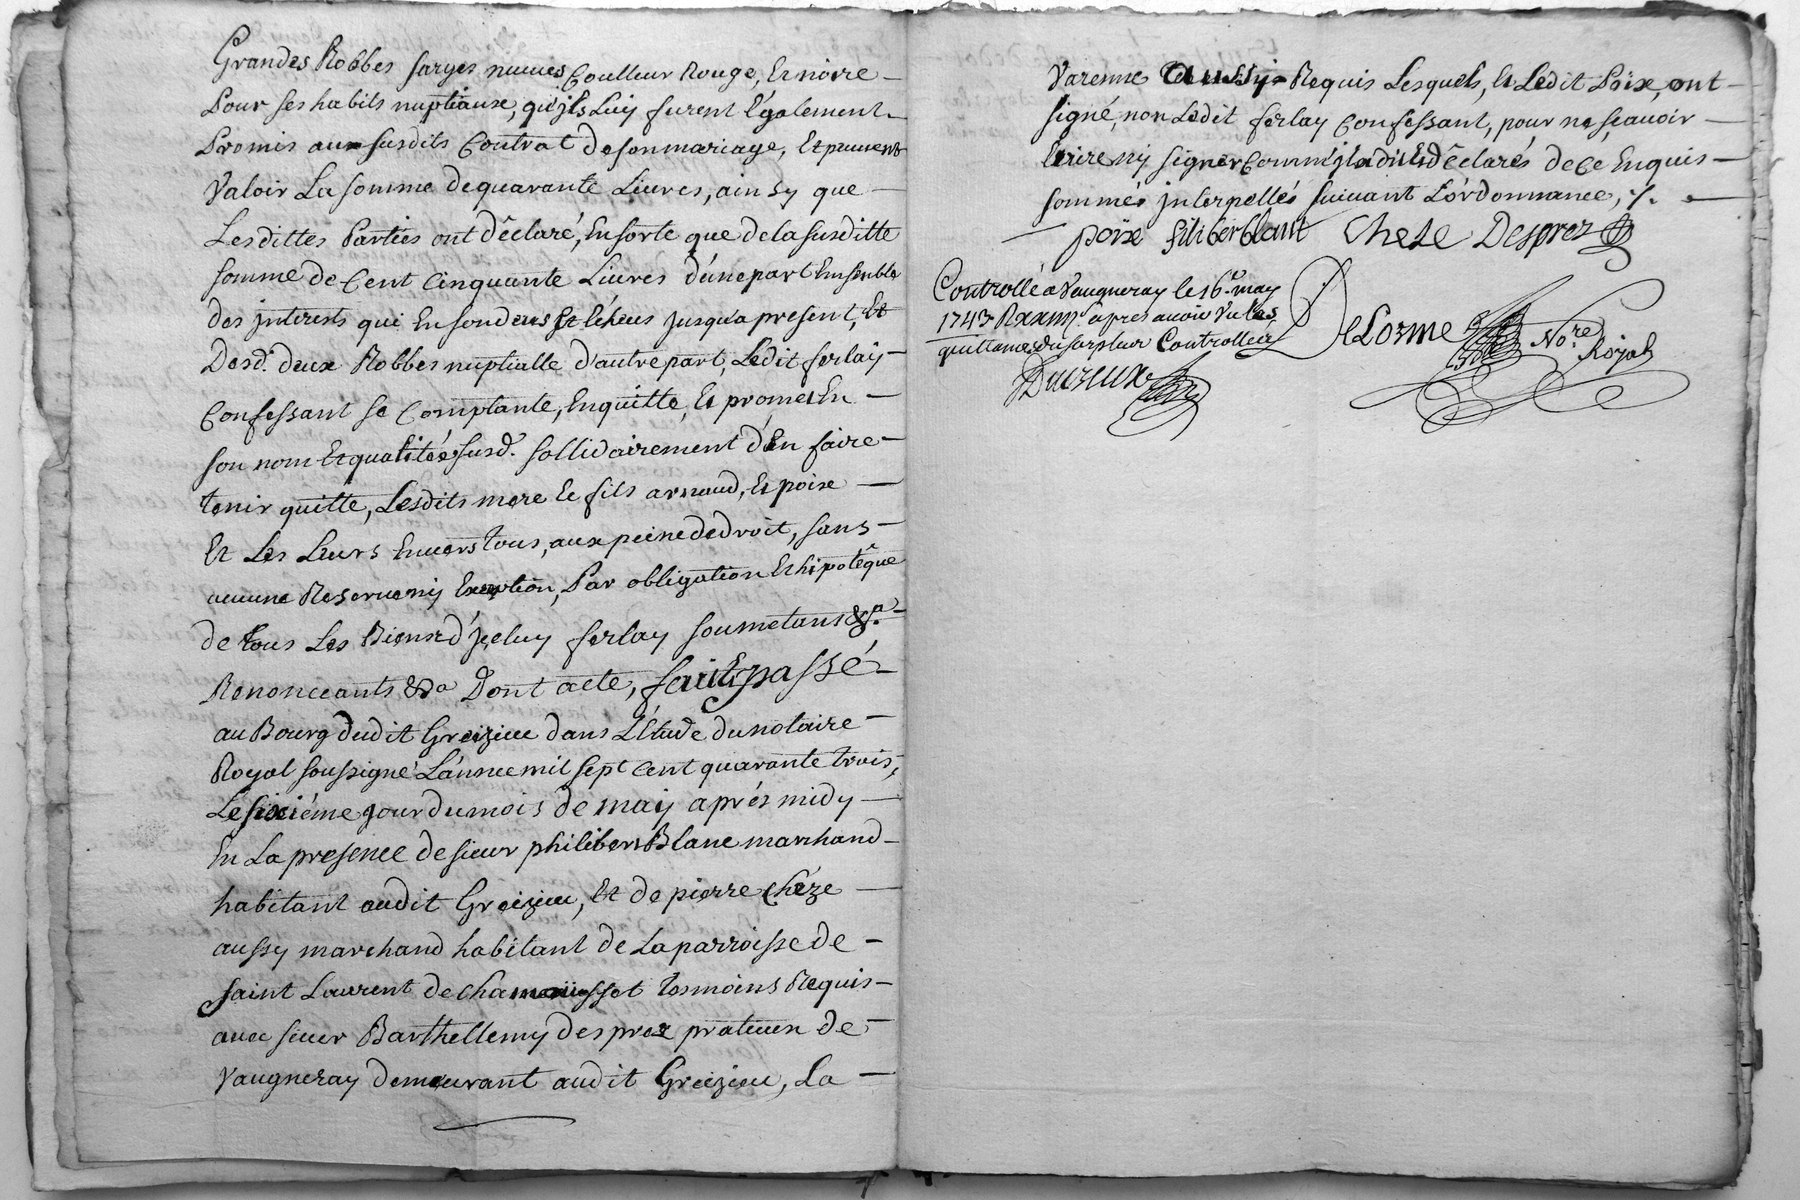 Grandes Robbes sarges nieues Coulleur Rouge, Et noire
Pour ses habits nuptiaux, qu'jls Luy furent Également
Promis aux susdits Contrat de son mariage, Et peuvent
Valoir La somme de quarante Livres, ainsy que
Lesdittes Parties ont Déclaré, En sorte que de la susditte
somme de Cent Cinquante Livres d'une part Ensemble
des jnterests qui En sond deus Et Écheus jusqu'a present, Et
Desd. deux Robbes nuptialle d'autre part, Ledit ferlay
Confessant se Comptante, En quitte, Et promet En
son nom Et qualités susd. sollidairement d'En faire
tenir quitte, Lesdits mere Et fils arnaud, Et poix
Et Les Leurs Envers tous, aux peine de droit, sans
aucune Reserve ny Exeption, Par obligation Et hipotêque
de tous Les Biens d'jceluy ferlay soumetans &a
Renonceants &a Dont acte, fait Et passé
au Bourg dudit Greizieu dans L'Étude du notaire
Royal soussigné L'année mil sept Cent quarante trois,
Le sixiéme jour du mois de may aprés midy
En La presence de sieur philibert Blanc marchand
habitant audit Greizieu, Et de pierre Chéze
aussy marchand habitant de La parroisse de
saint Laurent de Chamousset tesmoins Requis
avec sieur Barthellemy desprez praticien de
Vaugneray demeurant audit Greizieu, La
Varenne aussy Requis Lesquels, Et Ledit Poix, ont
signé, non Ledit ferlay Confessant, pour ne sçavoir
Écrire ny signer comme jl a dit Et déclarés de Ce Enquis
sommés jnterpellés suivant L'ordonnance, ./.
poix filiber blant Cheze Desprez
Controllé a Vaugneray le 16e. may
1743 R aprés avoir Vu les
quittances du surplus Controllées
Ducreux
DeLorme No.re Royal